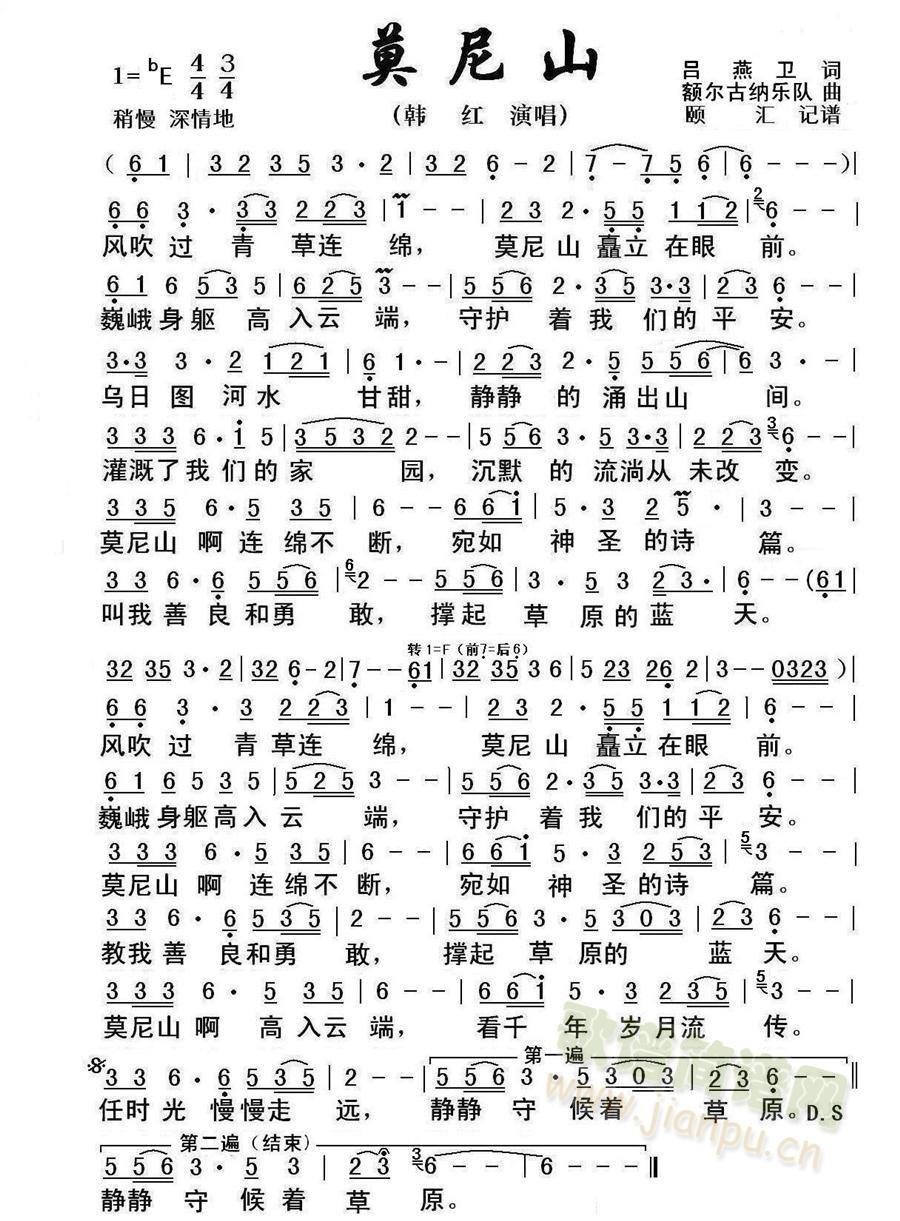 莫尼山
1=ᵇE 4/4 3/4
吕燕卫 词
额尔古纳乐队 曲
稍慢 深情地
(韩 红 演唱)
颐 汇 记谱
(6 1 | 3 2 3 5 3·2 | 3 2 6 - 2 | 7 - 7 5 6 | 6 - - -)|
6 6 3· 3 3 2 2 3 | 1 - - | 2 3 2· 5 5 1 1 2 | 6 - - |
风吹过 青草连绵, 莫尼山矗立在眼前。
6 1 6 5 3 5 | 6 2 5 3 - - | 5 5 6 2· 3 5 3·3 | 2 3 6 - - |
巍峨身躯 高入云端, 守护着我们的平安。
3·3 3·2 1 2 1 | 6 1·- | 2 2 3 2·5 5 5 6 | 6 3·- |
乌日图河水 甘甜, 静静的涌出山间。
3 3 3 6·i 5 | 3 5 3 2 2 - - | 5 5 6 5 3·3 | 2 2 3 6 - - |
灌溉了我们的家园, 沉默的流淌从未改变。
3 3 5 6·5 3 5 | 6 - - | 6 6 i 5·3 2 5 | 3 - - |
莫尼山啊连绵不断, 宛如神圣的诗篇。
3 3 6·6 5 5 6 | 2 - - | 5 5 6 3·5 3 2 3· | 6 - - (6 1 |
叫我善良和勇敢, 撑起草原的蓝天。
转1=F(前7=后6)
32 35 3·2 | 32 6 - 2 | 7 - - 61 | 32 35 3 6 | 5 23 26 2 | 3 - - 0323)|
6 6 3· 3 2 2 3 | 1 - - | 2 3 2· 5 5 1 1 2 | 6 - - |
风吹过 青草连绵, 莫尼山矗立在眼前。
6 1 6 5 3 5 | 5 2 5 3 - - | 5 5 6 2· 3 5 3·3 | 2 3 6 - - |
巍峨身躯高入云端, 守护着我们的平安。
3 3 3 6·5 3 5 | 6 - - | 6 6 i 5·3 2 5 3 | 3 - - |
莫尼山啊 连绵不断, 宛如神圣的诗篇。
3 3 6·6 5 3 5 | 2 - - | 5 5 6 3·5 3 0 3 | 2 3 6 - - |
教我善良和勇敢, 撑起草原的蓝天。
3 3 3 6·5 3 5 | 6 - - | 6 6 i 5·3 2 3 5 | 3 - - |
莫尼山啊 高入云端, 看千年岁月流传。
第一遍
3 3 6·6 5 3 5 | 2 - - | 5 5 6 3·5 3 0 3 | 2 3 6 - - ‖
任时光慢慢走远, 静静守候着草原。D.S
第二遍(结束)
5 5 6 3·5 3 | 2 3 6 - - | 6 - - ‖
静静守候着草原。
歌谱简谱网
www.jianpu.cn